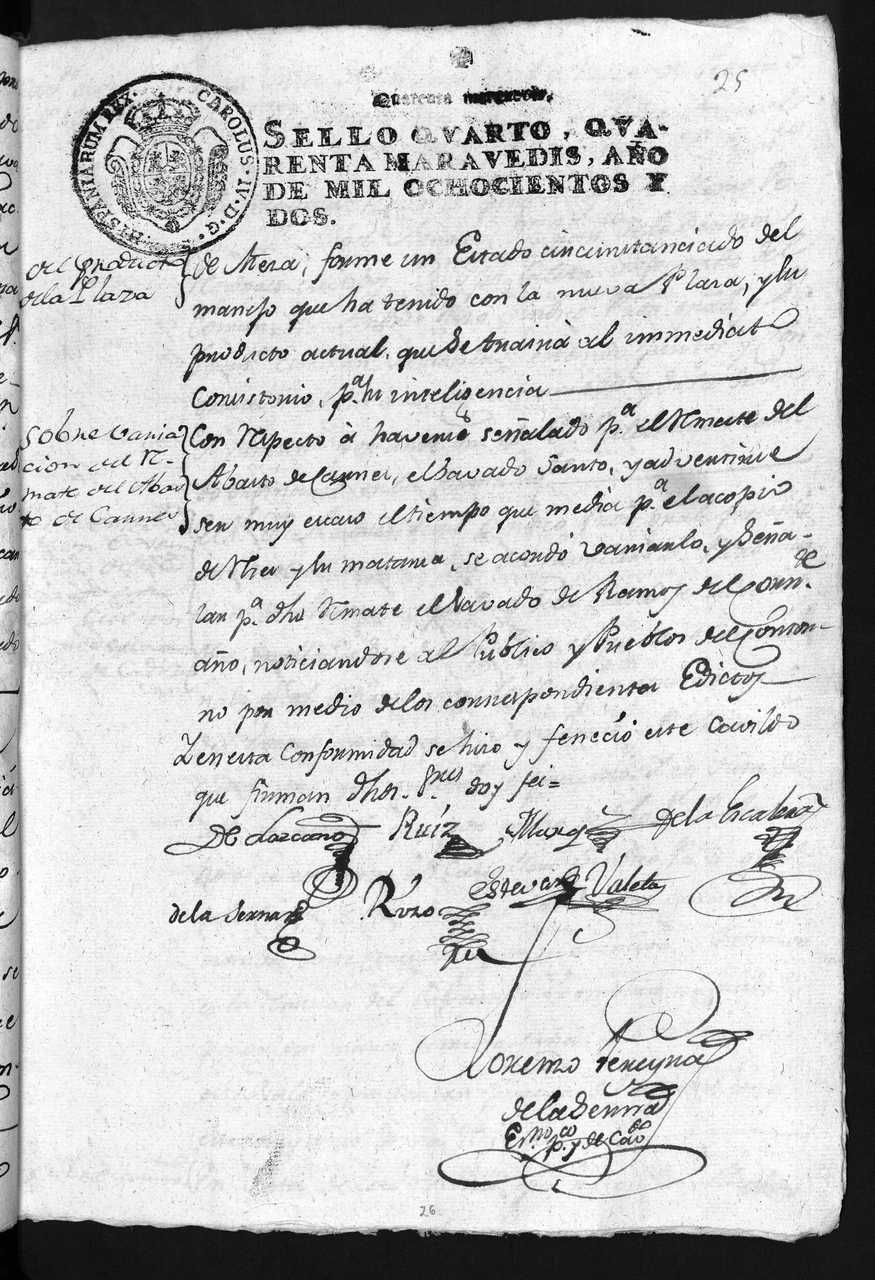 25
Quarenta maravedis.
HISPANIARUM REX · CAROLUS · IV · D · G ·
SELLO QVARTO, QVA-
RENTA MARAVEDIS, AÑO
DE MIL OCHOCIENTOS Y
DOS.
del producto
de la Plaza
de Mesa, forme un Estado circunstanciado del
manejo que ha tenido con la nueva Plaza, y su
producto actual, que se traira al immediato
Consistorio, p.ª su inteligencia
Sobre varia
cion del R-
mate del Abas
to de Carnes
Con respecto à haverse señalado p.ª el Rmate del
Abasto de Carnes, el Savado Santo, y advertirse
ser muy escaso el tiempo que media p.ª el acopio
de Rses y su matanza, se acordó variarlo, y Seña-
lar p.ª dho Rmate el Savado de Ramos del Corr.te
año, noticiandose al Público y Pueblos del Contor-
no por medio de los correspondientes Edictos
Y en esta Conformidad se hizo y feneció este Cavildo
que firman dhos. Sres doy fee=
De Lazcano
Ruíz
Marq
de la Escalera
de la Serna
Rozo
Estevan Valeta
Lorenzo Pereyra
de la Serna
Es.no p.co y de Cav.do
26